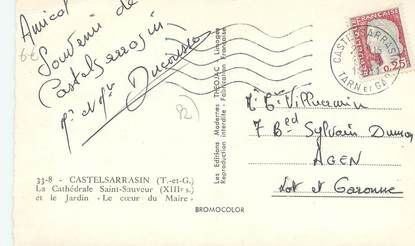 Amical
Souvenir de
Castelsarrasin
Mr et Mme Ducousso
33-8 - CASTELSARRASIN (T.-et-G.)
La Cathédrale Saint-Sauveur (XIIIe s.)
et le Jardin « Le cœur du Maire »
BROMOCOLOR
Les Editions Modernes
Reproduction interdite - Fabrication Française
CASTELSARRASIN
TARN ET
FRANÇAISE
0,25
Mr Mme Villuemin
7 Bd Sylvain Dumon
AGEN
Lot et Garonne